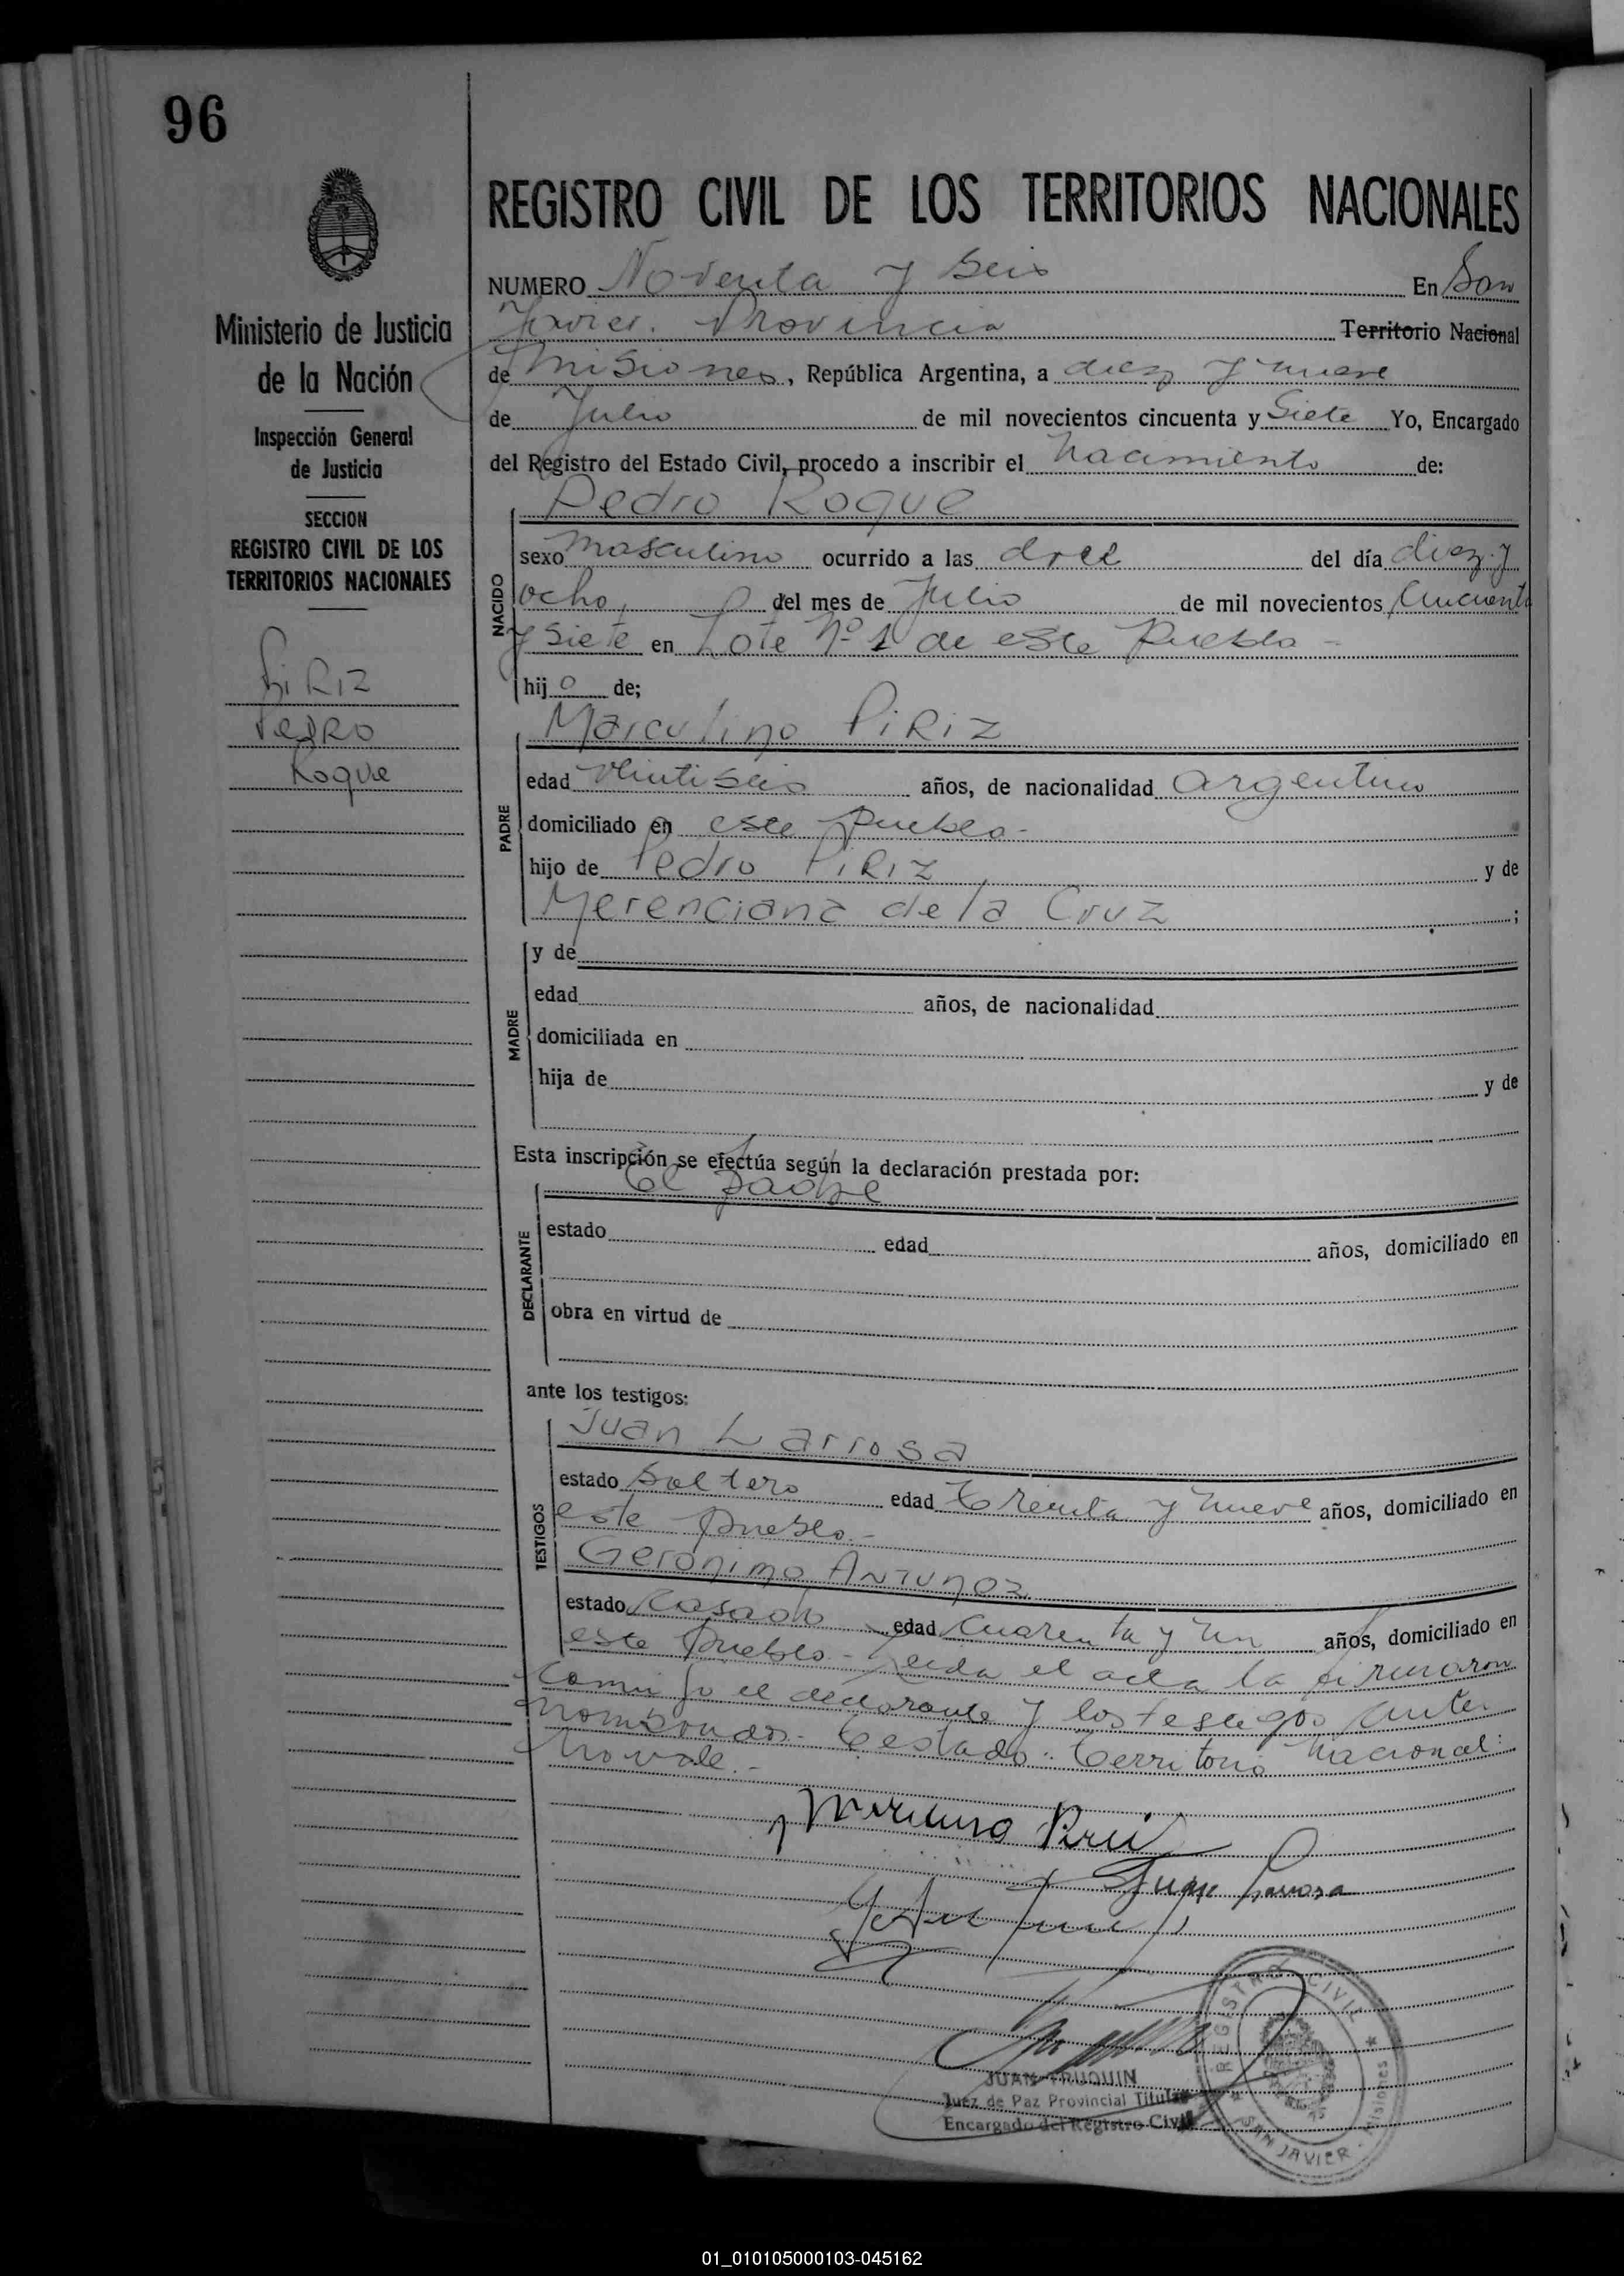 96
Ministerio de Justicia
de la Nación
Inspección General
de Justicia
SECCION
REGISTRO CIVIL DE LOS
TERRITORIOS NACIONALES
PIRIZ
PEDRO
Roque
REGISTRO CIVIL DE LOS TERRITORIOS NACIONALES
NUMERO Noventa y seis En San
Javier. Provincia Territorio Nacional
de Misiones, República Argentina, a diez y nueve
de Julio de mil novecientos cincuenta y Siete Yo, Encargado
del Registro del Estado Civil, procedo a inscribir el Nacimiento de:
Pedro Roque
NACIDO
sexo masculino ocurrido a las doce del día diez y
ocho, del mes de Julio de mil novecientos cincuenta
y siete en Lote Nº 1 de este Pueblo -
hijo de;
PADRE
Marculino PIRIZ
edad veintiseis años, de nacionalidad argentino
domiciliado en este pueblo -
hijo de Pedro PIRIZ y de
Merenciana de la Cruz ;
MADRE
y de
edad años, de nacionalidad
domiciliada en
hija de y de
Esta inscripción se efectúa según la declaración prestada por:
el padre
DECLARANTE
estado edad años, domiciliado en
obra en virtud de
ante los testigos:
TESTIGOS
Juan Larrosa
estado soltero edad treinta y nueve años, domiciliado en
este pueblo. -
Geronimo ANTUNEZ
estado casado edad cuarenta y un años, domiciliado en
este pueblo - Leida el acta la firmaron
conmigo el declarante y los testigos antes
nombrados - testado: territorio nacional:
no vale. -
Juan Larrosa
JUAN TRUQUIN
Juez de Paz Provincial Titular
Encargado del Registro Civil
REGISTRO CIVIL
SAN JAVIER - Misiones
01_010105000103-045162